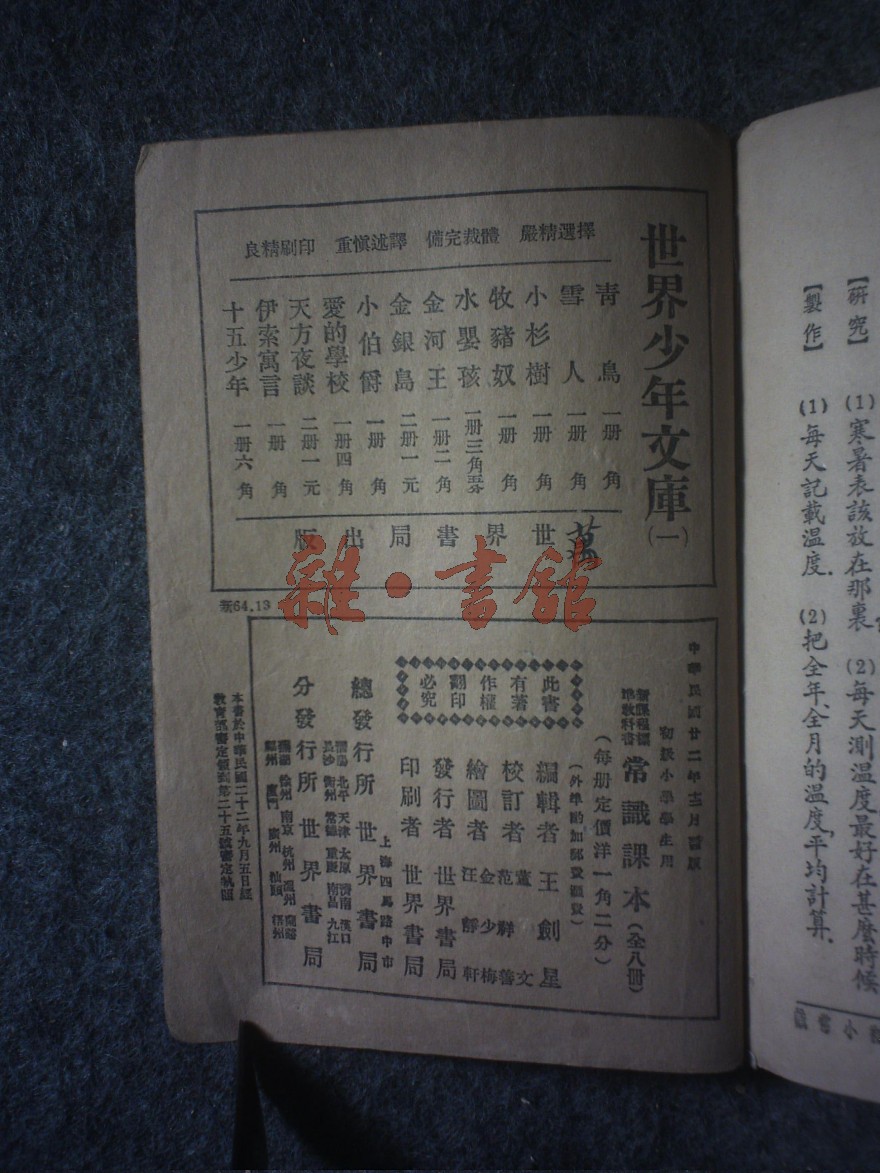 世界少年文庫(一)
擇選精嚴　體裁完備　譯述慎重　印刷精良
青鳥　一册　一角
雪人　一册　一角
小杉樹　一册　一角
牧豬奴　一册　一角
水嬰孩　一册三角五分
金河王　一册二角
金銀島　二册一元
小伯爵　一册　角
愛的學校　一册四角
天方夜談　二册一元
伊索寓言　一册　角
十五少年　一册六角
世界書局出版
雜·書舘
新64.13
中華民國廿二年十二月
初級小學學生用
新課程標準教科書
常識課本(全八册)
(每册定價洋一角二分)
(外埠酌加郵費匯費)
此書有著作權翻印必究
編輯者　王劍星
校訂者　范祥善
繪圖者　金少梅　汪靜軒
發行者　世界書局
印刷者　世界書局
上海四馬路中市
總發行所　世界書局
北平　天津　太原　濟南　漢口
長沙　衡州　常德　重慶　南昌　九江
分發行所　世界書局
徐州　南京　杭州　溫州
廈門　廣州　汕頭　梧州
本書於中華民國二十二年九月五日經
教育部審定領到第二十五號審定執照
【研究】　(1)寒暑表該放在那裏　(2)每天測温度最好在甚麼時候
【製作】　(1)每天記載温度.　(2)把全年、全月的温度,平均計算.
小常識